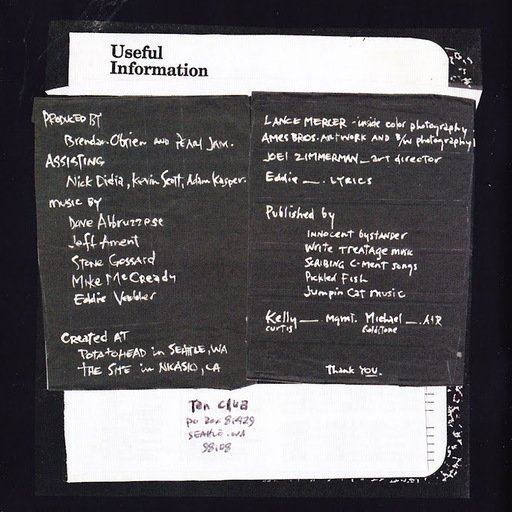 Useful
Information
PRODUCED BY
Brendan O'Brien AND PEARL JAM.
ASSISTING
Nick Didia, Kevin Scott, Adam Kasper.
MUSIC BY
Dave Abbruzzese
Jeff Ament
Stone Gossard
Mike McCready
Eddie Vedder
CREATED AT
POTATOHEAD in SEATTLE, WA
THE SITE in NICASIO, CA
LANCE MERCER - inside color photography
AMES BROS. ARTWORK AND B/W photography
JOEL ZIMMERMAN _ art director
Eddie _. LYRICS
Published by
INNOCENT bystander
Write TREATAGE music
SCRIBING C-MENT songs
Pickled Fish
Jumpin Cat music
Kelly _ Mgmt. Michael _. A&R
curtis Goldstone
Thank YOU.
Ten Club
po box 81429
SEATTLE. WA
98108